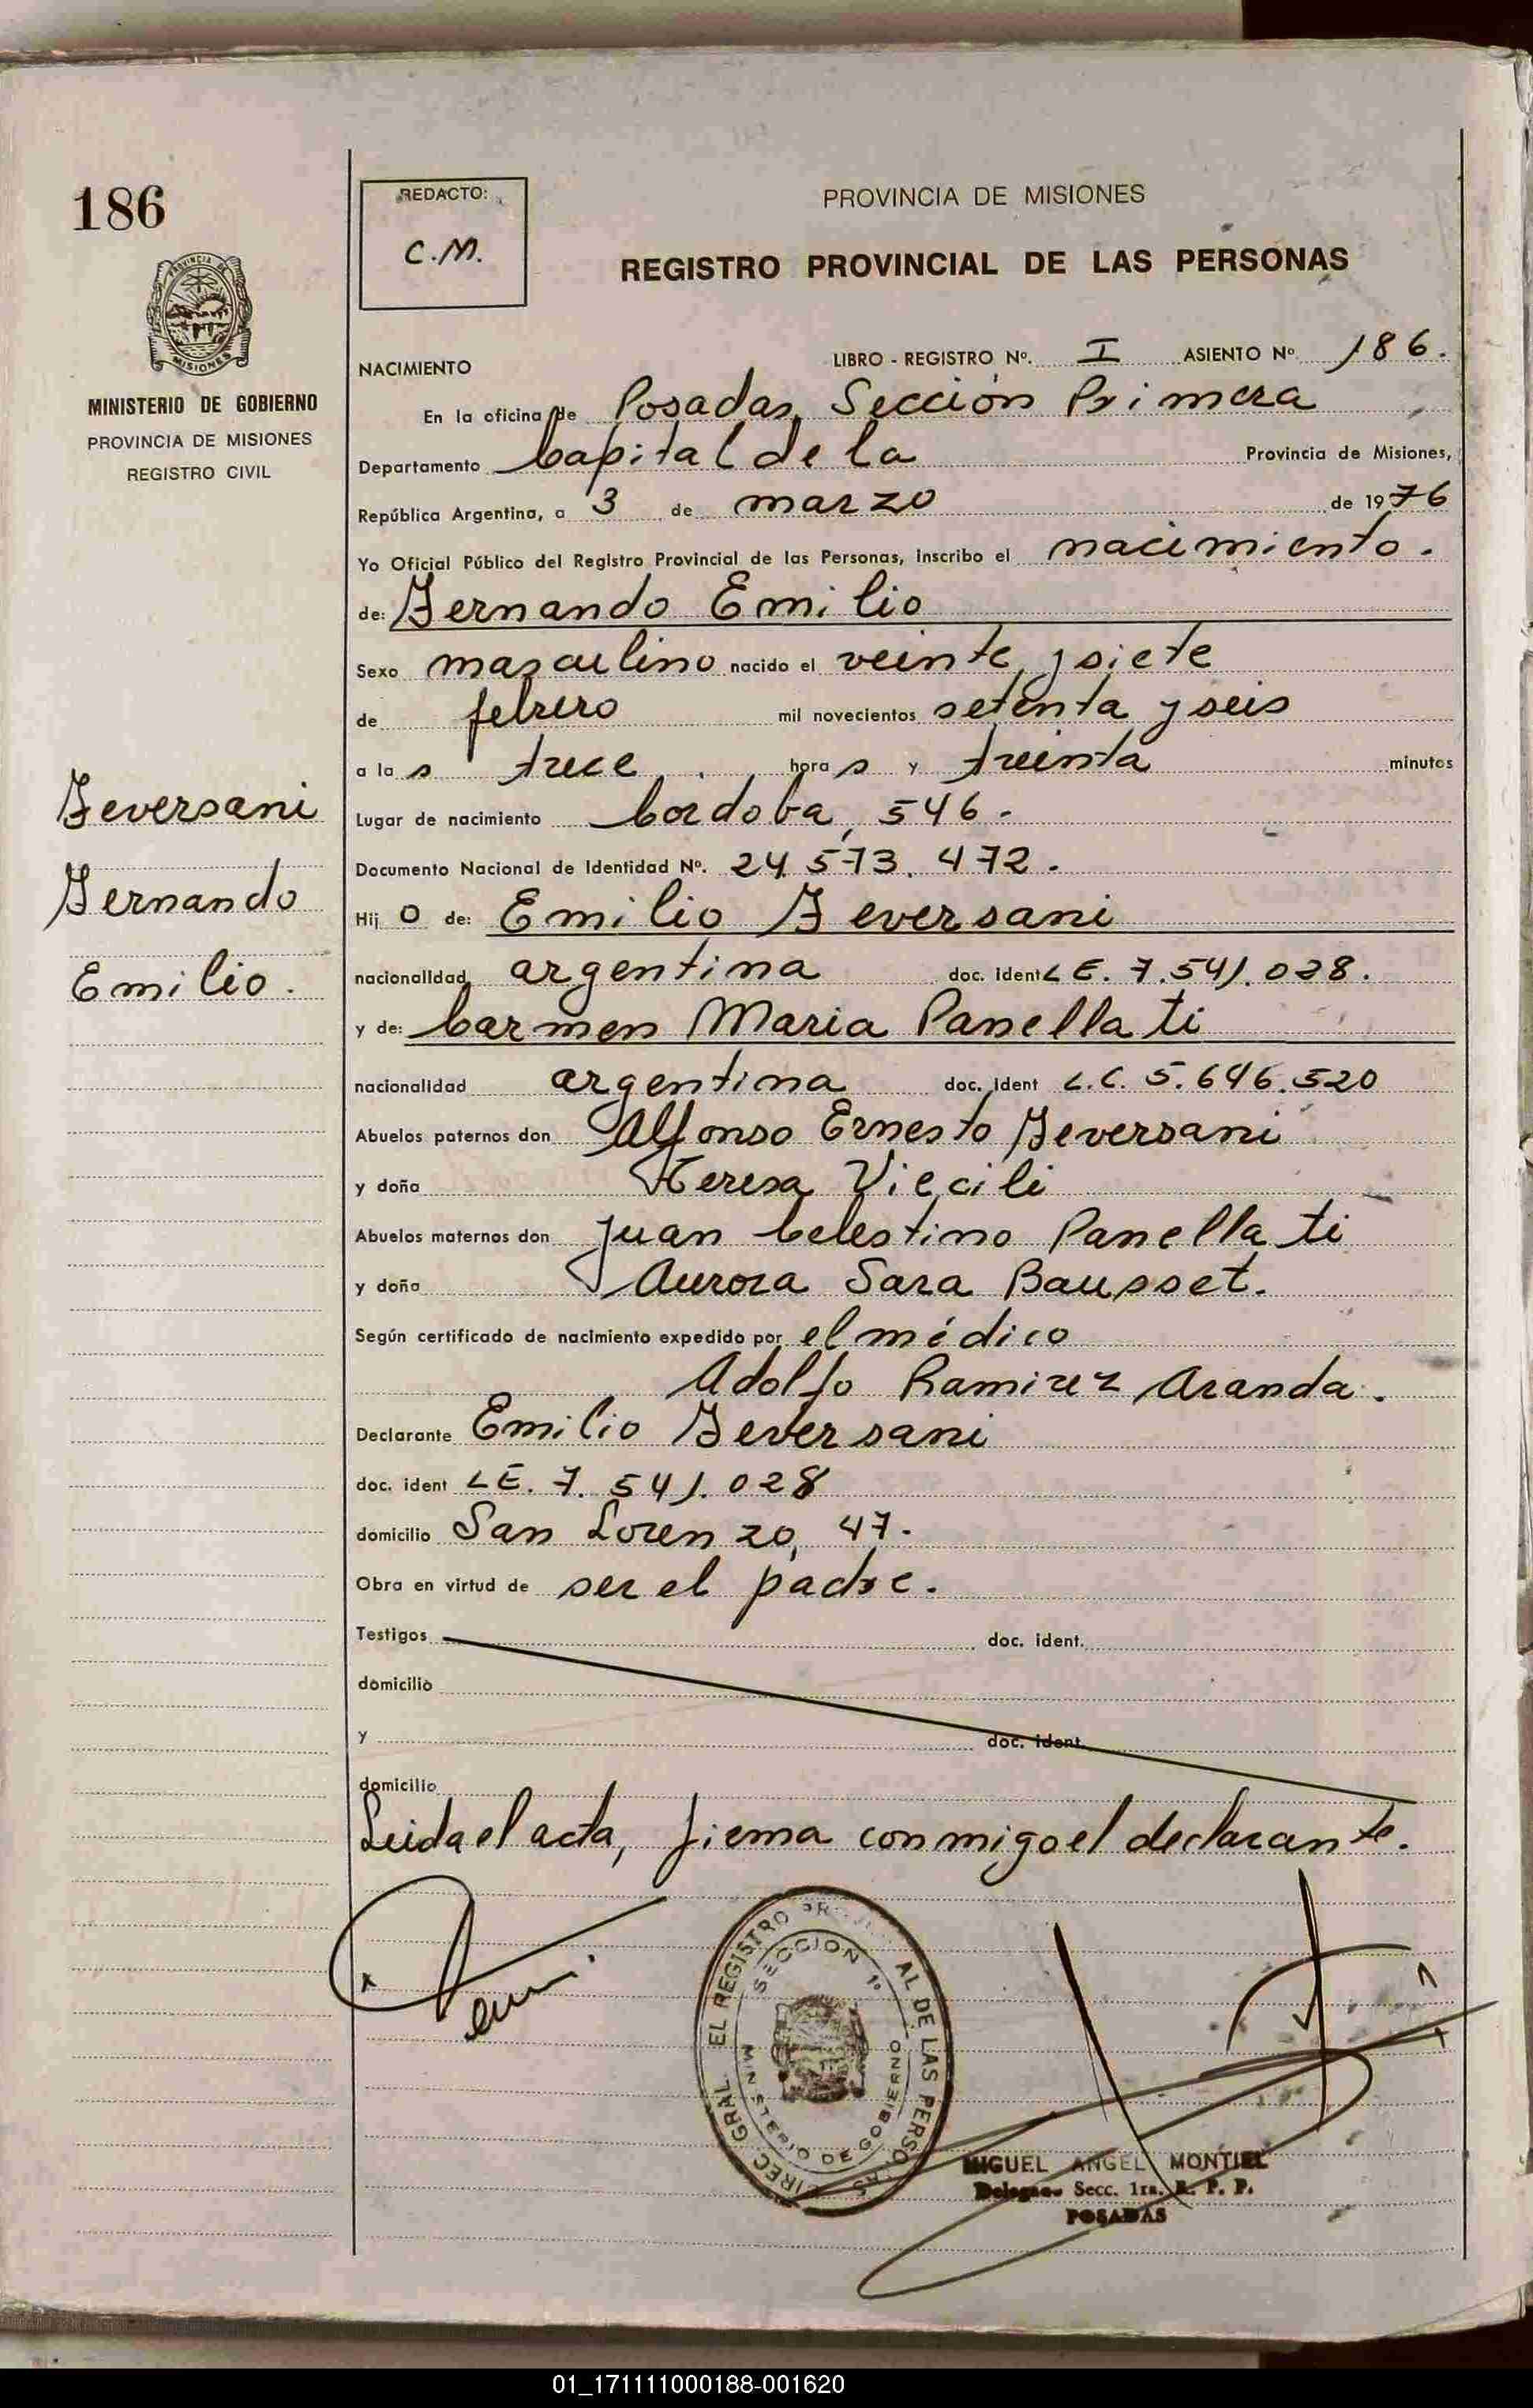 186
REDACTO:
C.M.
PROVINCIA DE MISIONES
REGISTRO PROVINCIAL DE LAS PERSONAS
PROVINCIA DE
MISIONES
MINISTERIO DE GOBIERNO
PROVINCIA DE MISIONES
REGISTRO CIVIL
NACIMIENTO
LIBRO - REGISTRO Nº. I ASIENTO Nº 186.
En la oficina de Posadas, Sección Primera
Departamento Capital de la Provincia de Misiones,
República Argentina, a 3 de marzo de 1976
Yo Oficial Público del Registro Provincial de las Personas, inscribo el nacimiento.
de: Fernando Emilio
Sexo masculino nacido el veinte y siete
de febrero mil novecientos setenta y seis
a la s trece hora s y treinta minutos
Lugar de nacimiento Cordoba, 546.
Documento Nacional de Identidad Nº. 24.573.472.
Hij o de: Emilio Feversani
nacionalidad argentina doc. ident L E. 7.541.028.
y de: Carmen Maria Panellati
nacionalidad argentina doc. ident L.C. 5.646.520
Abuelos paternos don Alfonso Ernesto Feversani
y doña Teresa Viecili
Abuelos maternos don Juan Celestino Panellati
y doña Aurora Sara Bausset.
Según certificado de nacimiento expedido por el médico
Adolfo Ramirez Aranda.
Declarante Emilio Feversani
doc. ident L E. 7.541.028
domicilio San Lorenzo, 47.
Obra en virtud de ser el padre.
Testigos doc. ident.
domicilio
y doc. ident.
domicilio
Leida el acta, firma conmigo el declarante.
Feversani
Fernando
Emilio.
DIREC. GRAL EL REGISTRO AL DE LAS PERSONAS
SECCION 1ª
MINISTERIO DE GOBIERNO
MIGUEL ANGEL MONTIEL
Delegado Secc. 1ra. R. P. P.
POSADAS
01_171111000188-001620